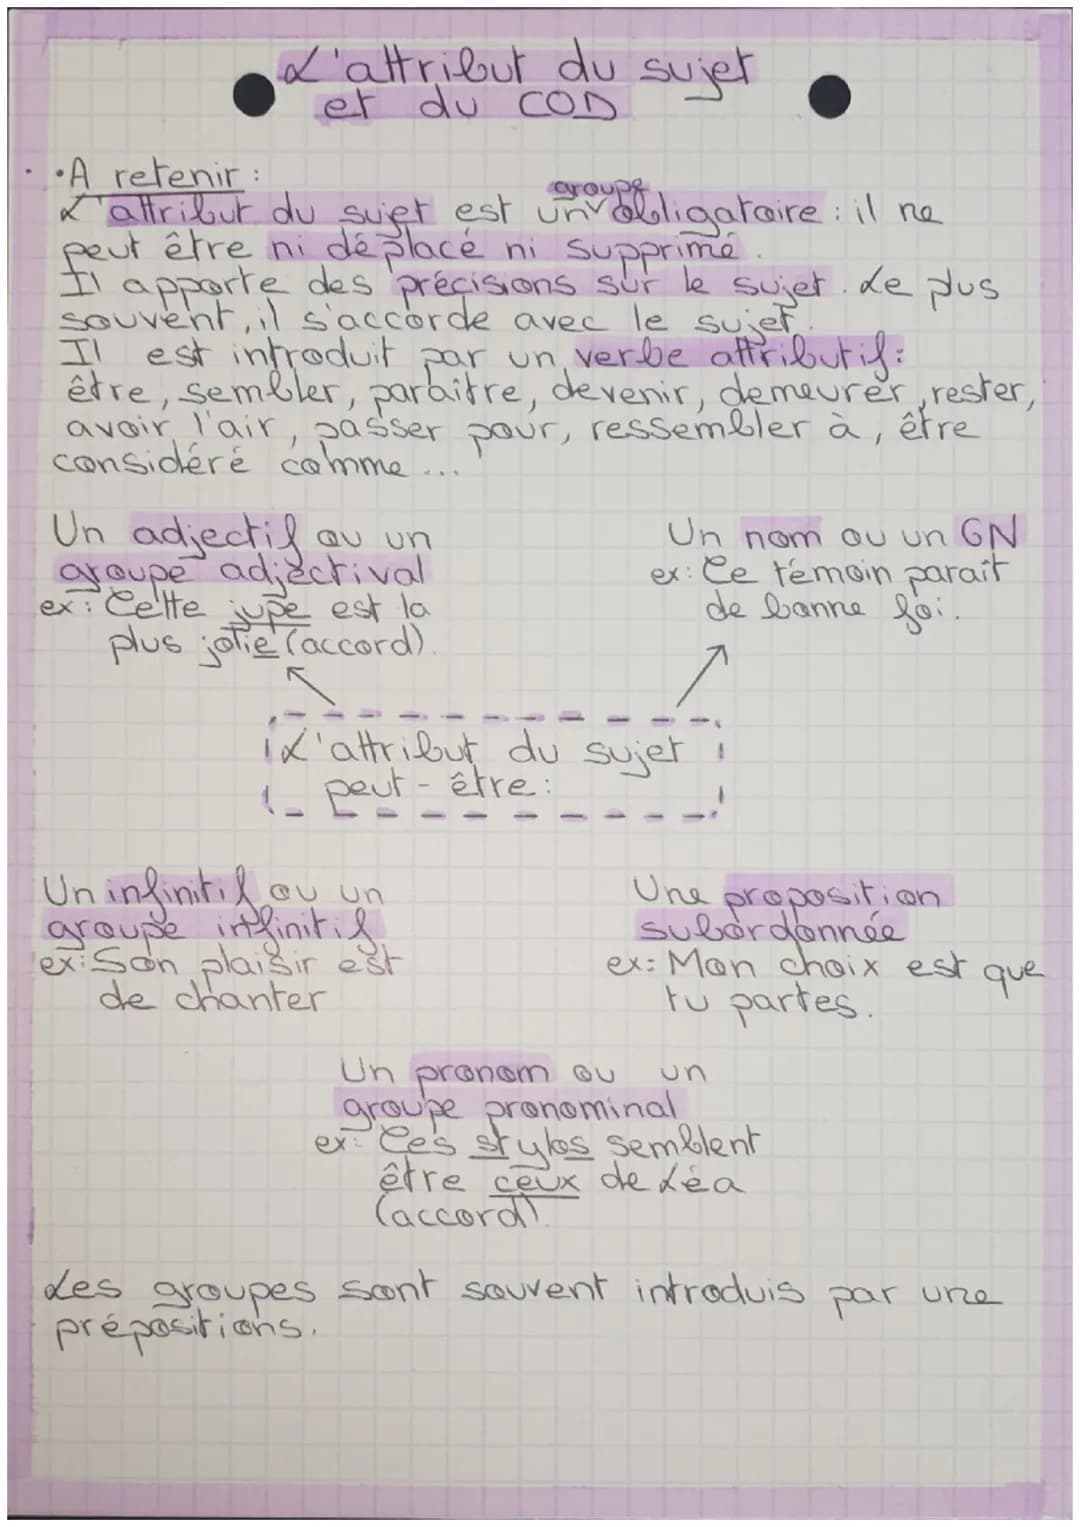 L'attribut du sujet
et du COD
•A retenir :
L'attribut du sujet est un groupe obligatoire : il ne
peut être ni déplacé ni supprimé.
Il apporte des précisions sur le sujet. Le plus
souvent, il s'accorde avec le sujet.
Il est introduit par un verbe attributif:
être, sembler, paraître, devenir, demeurer, rester,
avoir l'air, passer pour, ressembler à, être
considéré comme ...
Un adjectif ou un
groupe adjectival
ex : Cette jupe est la
plus jolie (accord).
Un nom ou un GN
ex: Ce témoin parait
de bonne foi.
L'attribut du sujet
peut-être:
Un infinitif ou un
groupe infinitif
ex: Son plaisir est
de chanter
Une proposition
subordonnée
ex: Mon choix est que
tu partes.
Un pronom ou un
groupe pronominal
ex: Ces stylos semblent
être ceux de Léa
(accord).
Les groupes sont souvent introduis par une
prépositions.